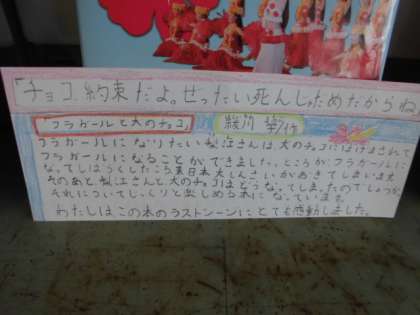 「チョコ、約束だよ。ぜったい死んじゃだめだからね
「フラガールと犬のチョコ」
フラガールになりたい梨江さんは、犬のチョコにはげまされて
フラガールになることができました。ところがフラガールに
なってしばらくしたころ東日本大しんさいがおきてしまいます
そのあと梨江さんと犬のチョコはどうなってしまったのでしょうか。
それについてじっくりと楽しめる本になっています。
わたしはこの本のラストシーンにとても感動しました。